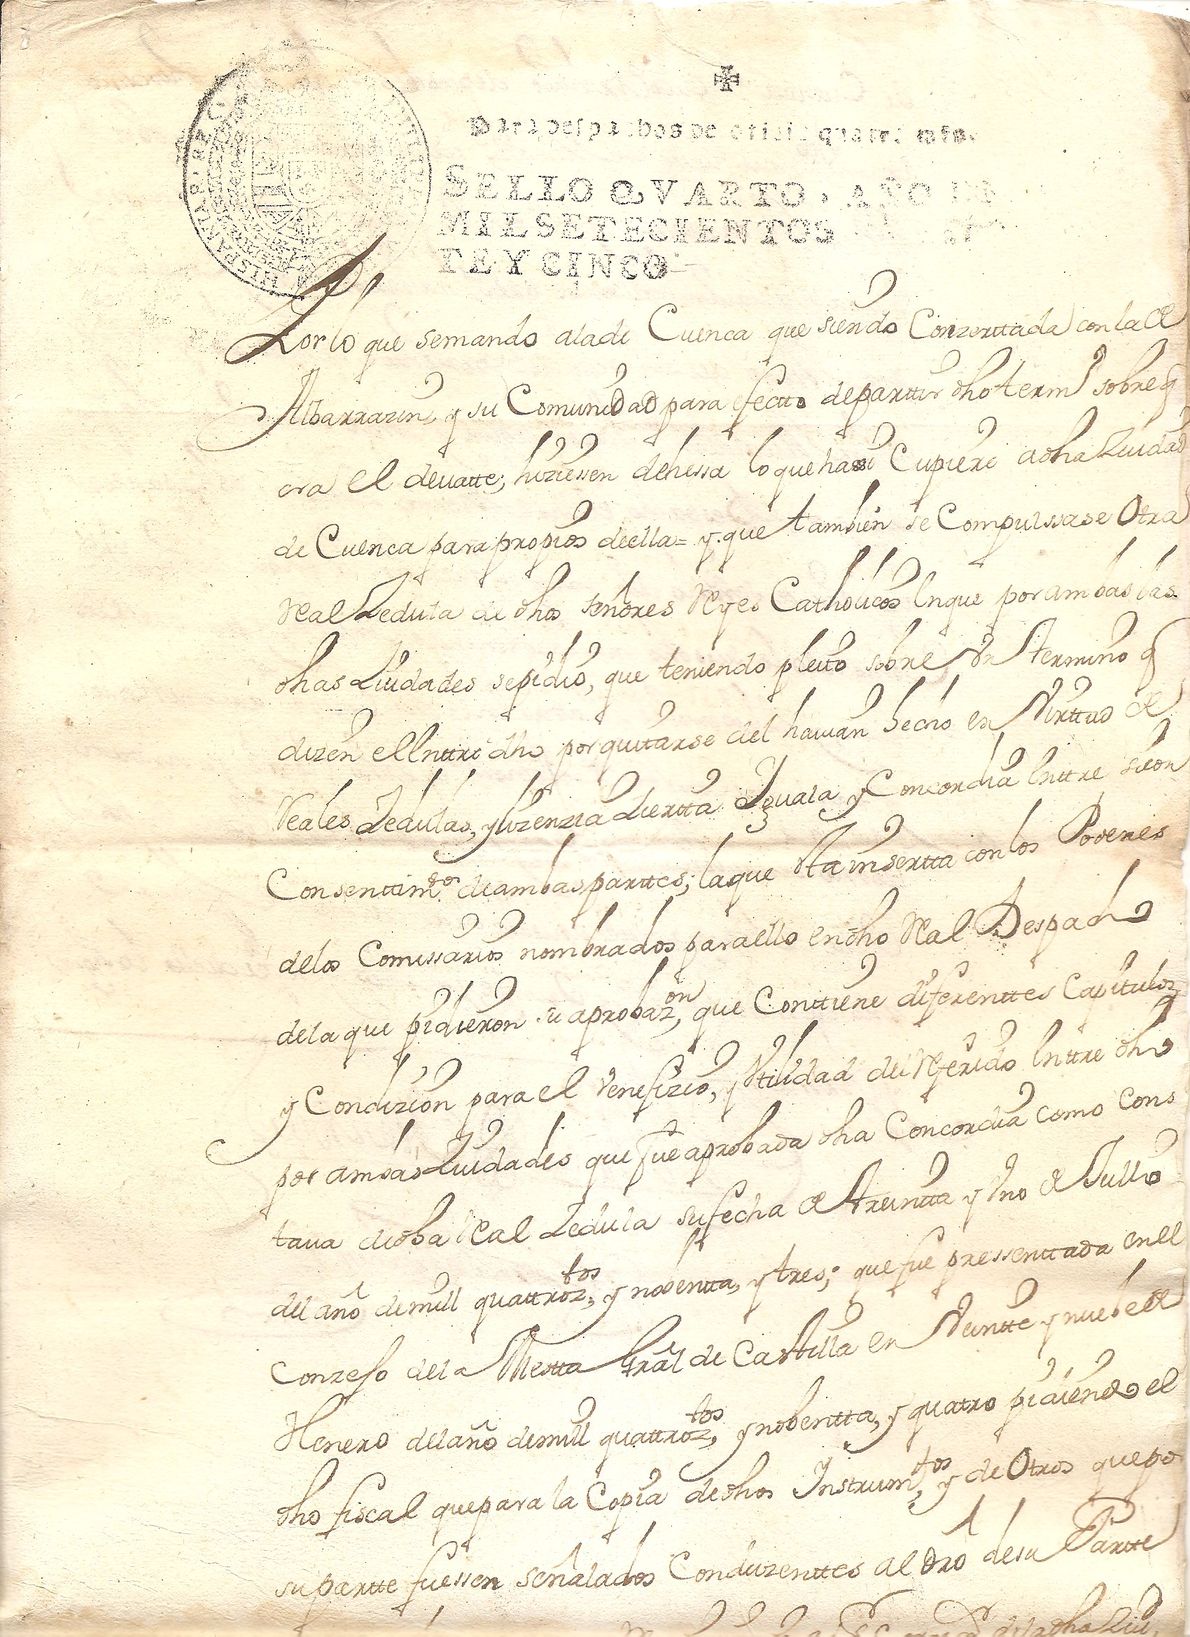 Para despachos de oficio quatro mrs.
SELLO QVARTO, AÑO DE
MIL SETECIENTOS
TE Y CINCO
HISPANIARVM
Por lo que semando alade Cuenca que siendo Conzerttada con la de
Albarrazin, y su Comunidad para efectto departtir dho termº sobre q
era el devatte; hiziessen dehessa lo que hasi Cupiere a dha Ziudad
de Cuenca para propios deella = y que tambien se Compulssase Otra
Real Zedula de dhos señores Reyes Catholicos En que por ambas las
dhas Ziudades sepidio, que teniendo pleito sobre Vn termino q
dizen el Enttre dho por quitarse del havian hecho en Virttud de
Reales Zedulas, y lizenzia Zierta Iguala y Concordia Enttre si con
Consenttimtº de ambas parttes; la que Sta insertta con los Poderes
delos Comissarios nombrados para ello en dho Real Despacho
dela que pidieron aprobazon, que Conttiene diferenttes Capitulos
y Condizion para el Venefizio, y Vtilidad del Referido Enttre dho
por ambas Ziudades que fue aprobada dha Concordia como cons
tava de dha Real Zedula su fecha de treintta y Vno de Jullio
del año de mill quattroztos, y nobentta, y tres; que fue pressenttada en el
Conzejo de la Mestta Gral de Castilla en Veintte y nuebe de
Henero del año de mill quattroztos, y nobentta, y quatro pidiendo el
dho fiscal que para la Copia de dhos Instrumtos, y de Otros que po
su partte fuessen señalados Conduzenttes al dro de su Partte
de la dha Ziu